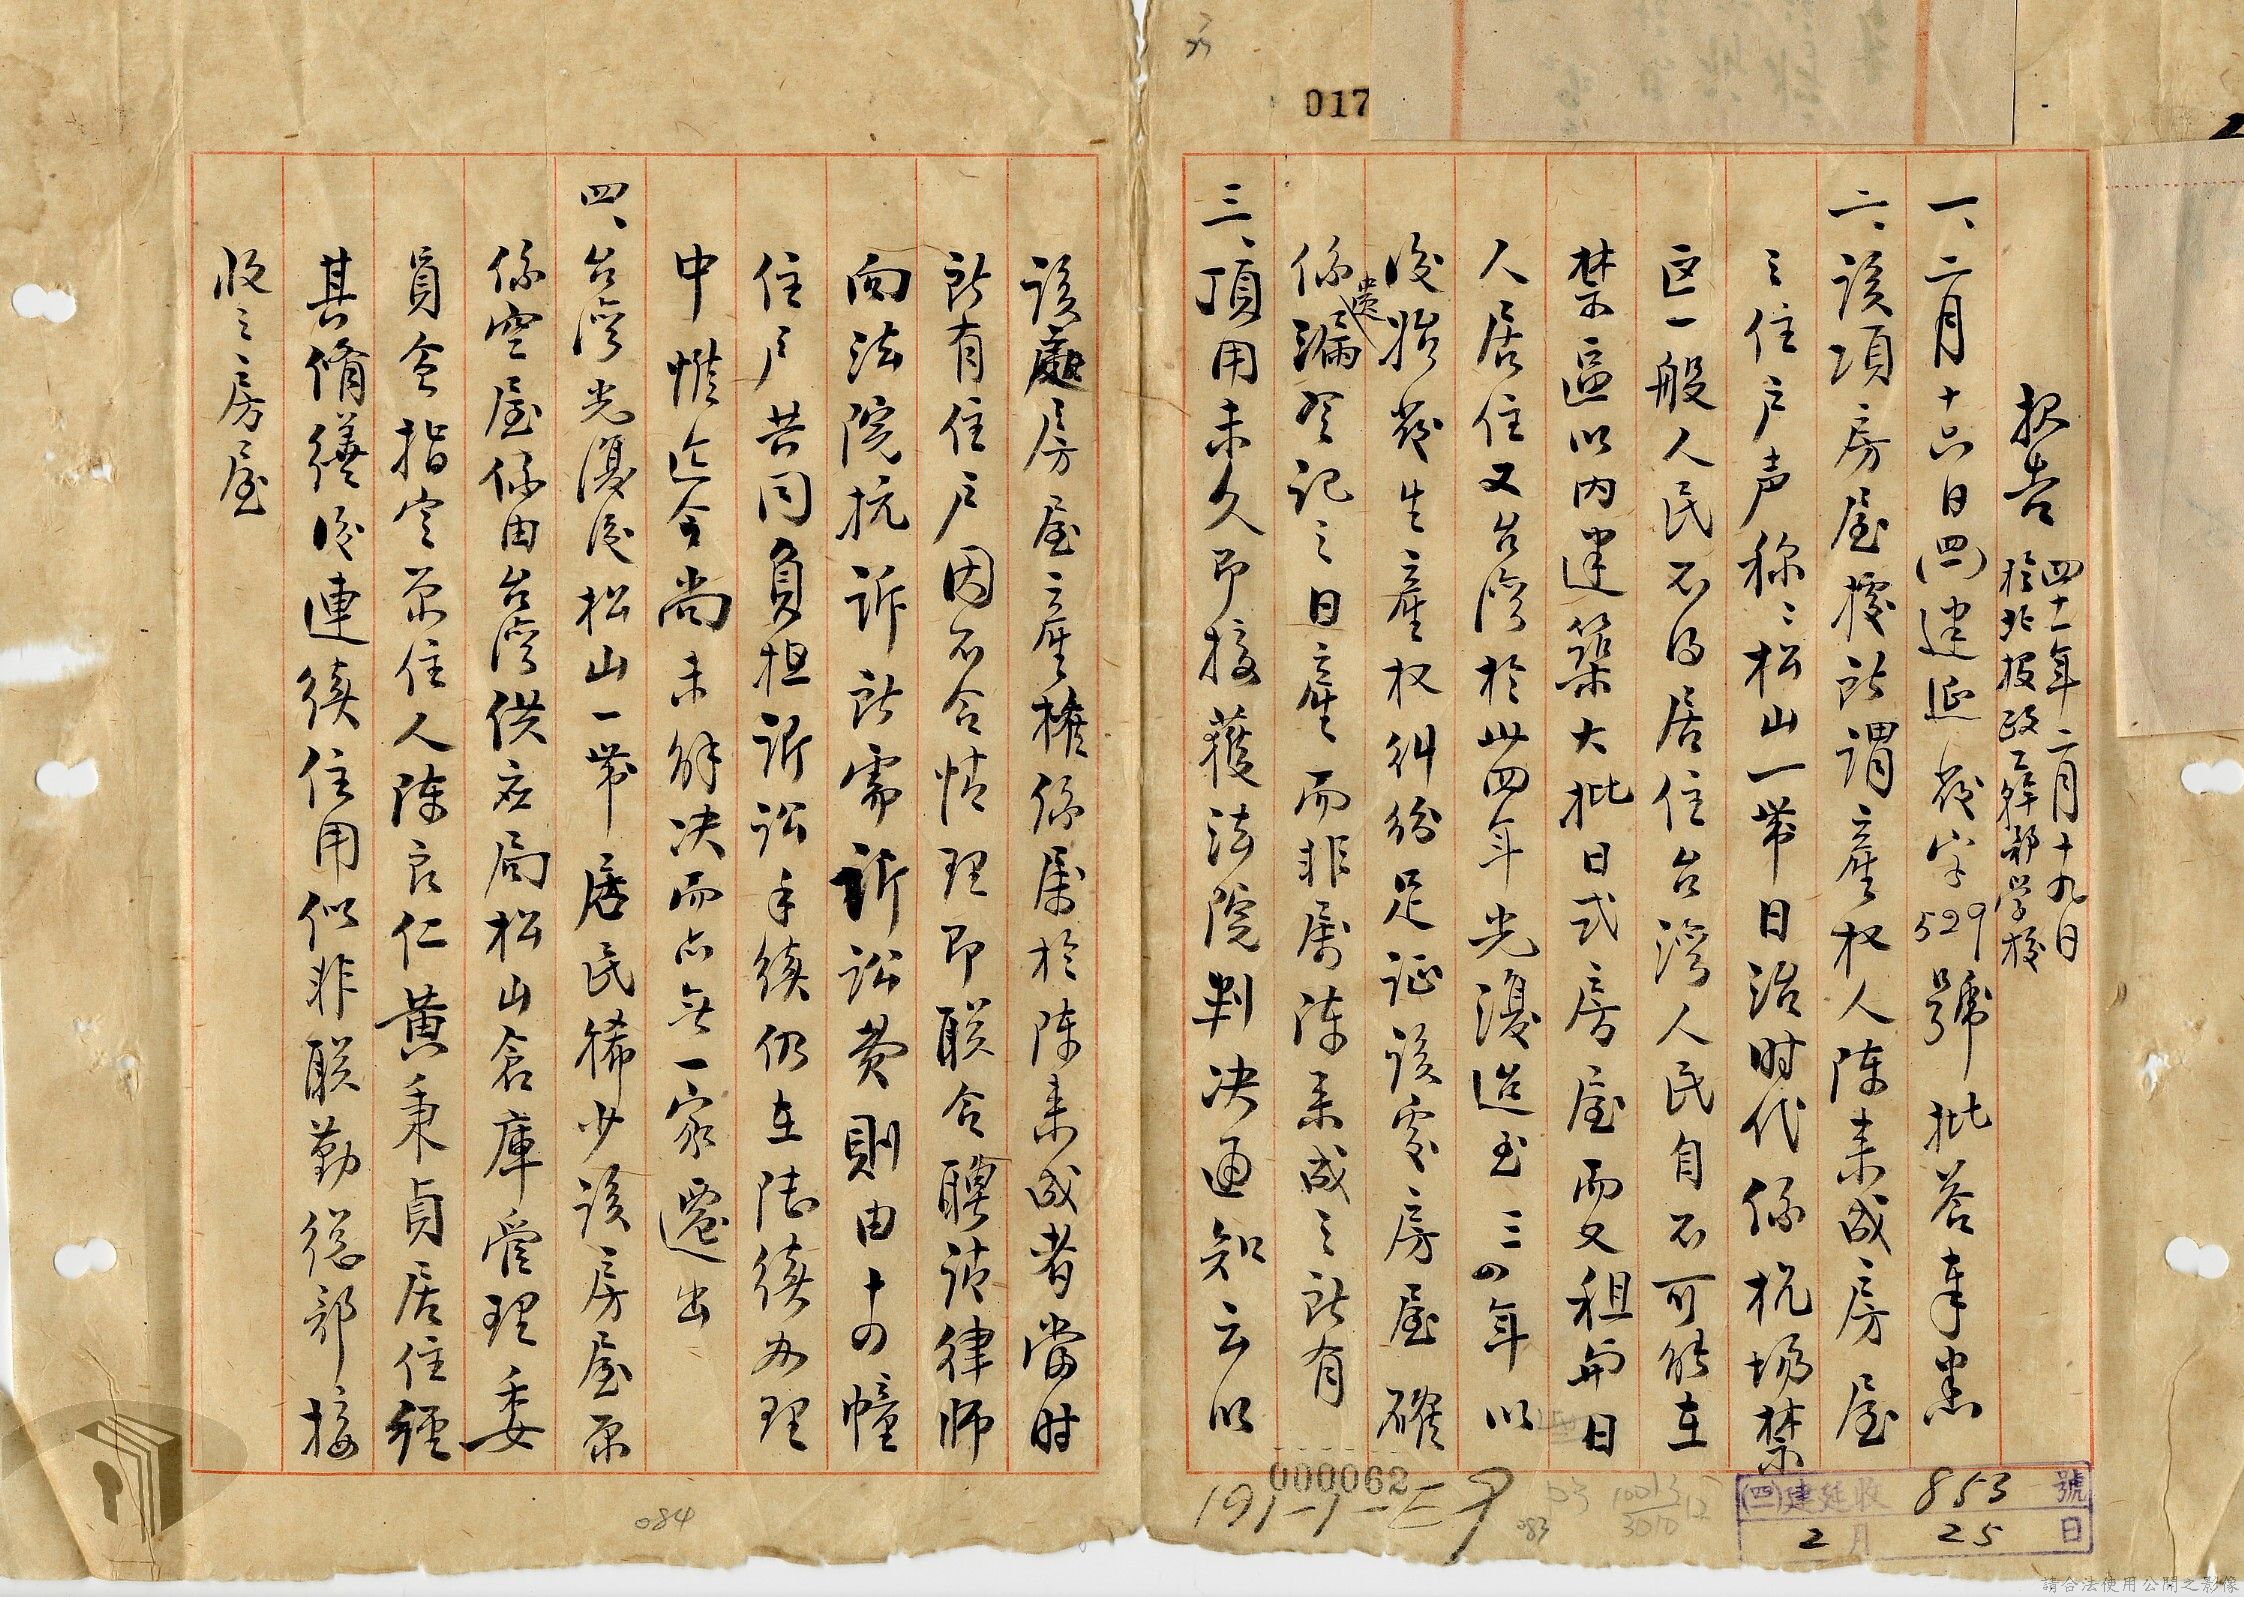 017
報告 四十一年二月十九日
於北投政工幹部學校
一、二月十六日(四)建延發字529號批答奉悉
二、該項房屋據所謂產权人陈来成房屋
之住户声称：松山一带日治时代係机場禁
区一般人民不得居住台湾人民自不可能在
禁區以内建築大批日式房屋而又租與日
人居住又台湾於卅四年光復迨至三四年以
後始發生產权糾紛足证该處房屋確
係遺漏登记之日產而非属陳来成之所有
三、頂用未久即接獲法院判决通知云以
该處房屋產權係属於陈来成者當时
所有住户因不合情理即联合聘請律师
向法院抗訴所需訴訟費則由十四幢
住户共同負担訴訟手续仍在陸续办理
中惟迄今尚未解决而亦無一家遷出
四、台灣光復後松山一帶居民稀少该房屋原
係空屋係由台湾供应局松山倉庫管理委
員会指定原住人陈良仁黄秉貞居住經
其脩繕後連续住用似非联勤総部接
收之房屋
000062
191-1-
083
084
(四)建延收 853 號
2月 25 日
請合法使用公開之影像